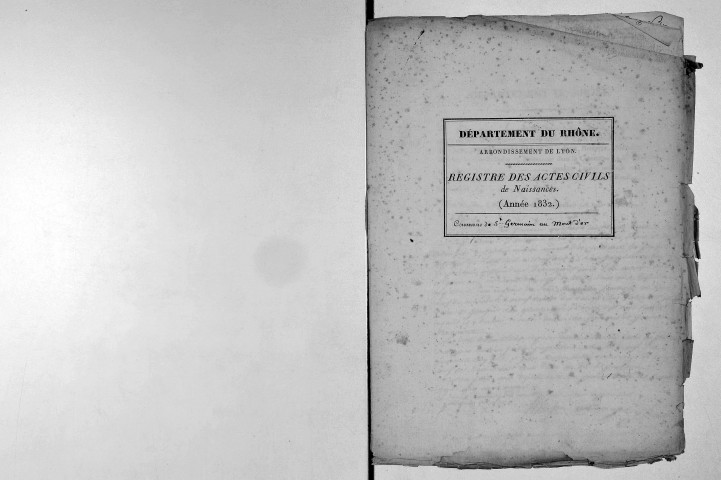 DÉPARTEMENT DU RHÔNE.
ARRONDISSEMENT DE LYON.
REGISTRE DES ACTES CIVILS
de Naissances.
(Année 1832.)
Commune de St Germain au Mont d'or